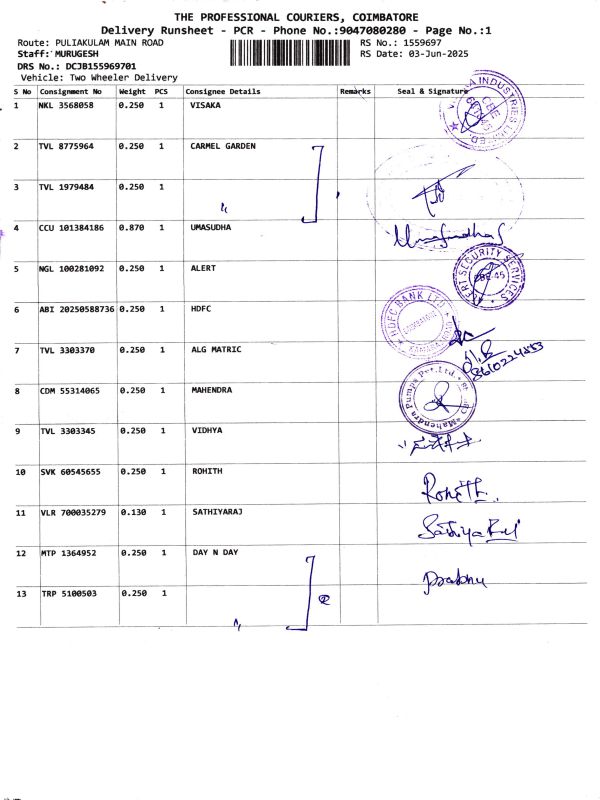 THE PROFESSIONAL COURIERS, COIMBATORE
Delivery Runsheet - PCR - Phone No.:9047080280 - Page No.:1
Route: PULIAKULAM MAIN ROAD
RS No.: 1559697
Staff: MURUGESH
RS Date: 03-Jun-2025
DRS No.: DCJB155969701
Vehicle: Two Wheeler Delivery
S No Consignment No Weight PCS Consignee Details Remarks Seal & Signature
1 NKL 3568058 0.250 1 VISAKA
INDUSTRIES LIMITED
2 TVL 8775964 0.250 1 CARMEL GARDEN
3 TVL 1979484 0.250 1 "
4 CCU 101384186 0.870 1 UMASUDHA
Umasudha S
5 NGL 100281092 0.250 1 ALERT
ALERT SECURITY SERVICES
CBE-45
6 ABI 20250588736 0.250 1 HDFC
HDFC BANK LTD
7 TVL 3303370 0.250 1 ALG MATRIC
8610224853
8 CDM 55314065 0.250 1 MAHENDRA
Mahendra Pumps Pvt.Ltd.
9 TVL 3303345 0.250 1 VIDHYA
10 SVK 60545655 0.250 1 ROHITH
Rohith
11 VLR 700035279 0.130 1 SATHIYARAJ
Sathiya Raj
12 MTP 1364952 0.250 1 DAY N DAY
Prabhu
13 TRP 5100503 0.250 1
"